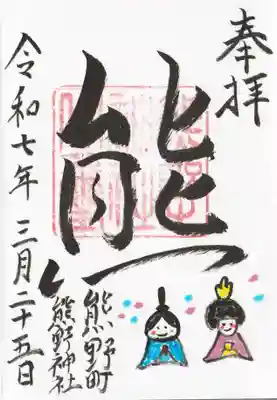 奉拝
熊
熊野町
熊野神社
令和七年 三月二十五日